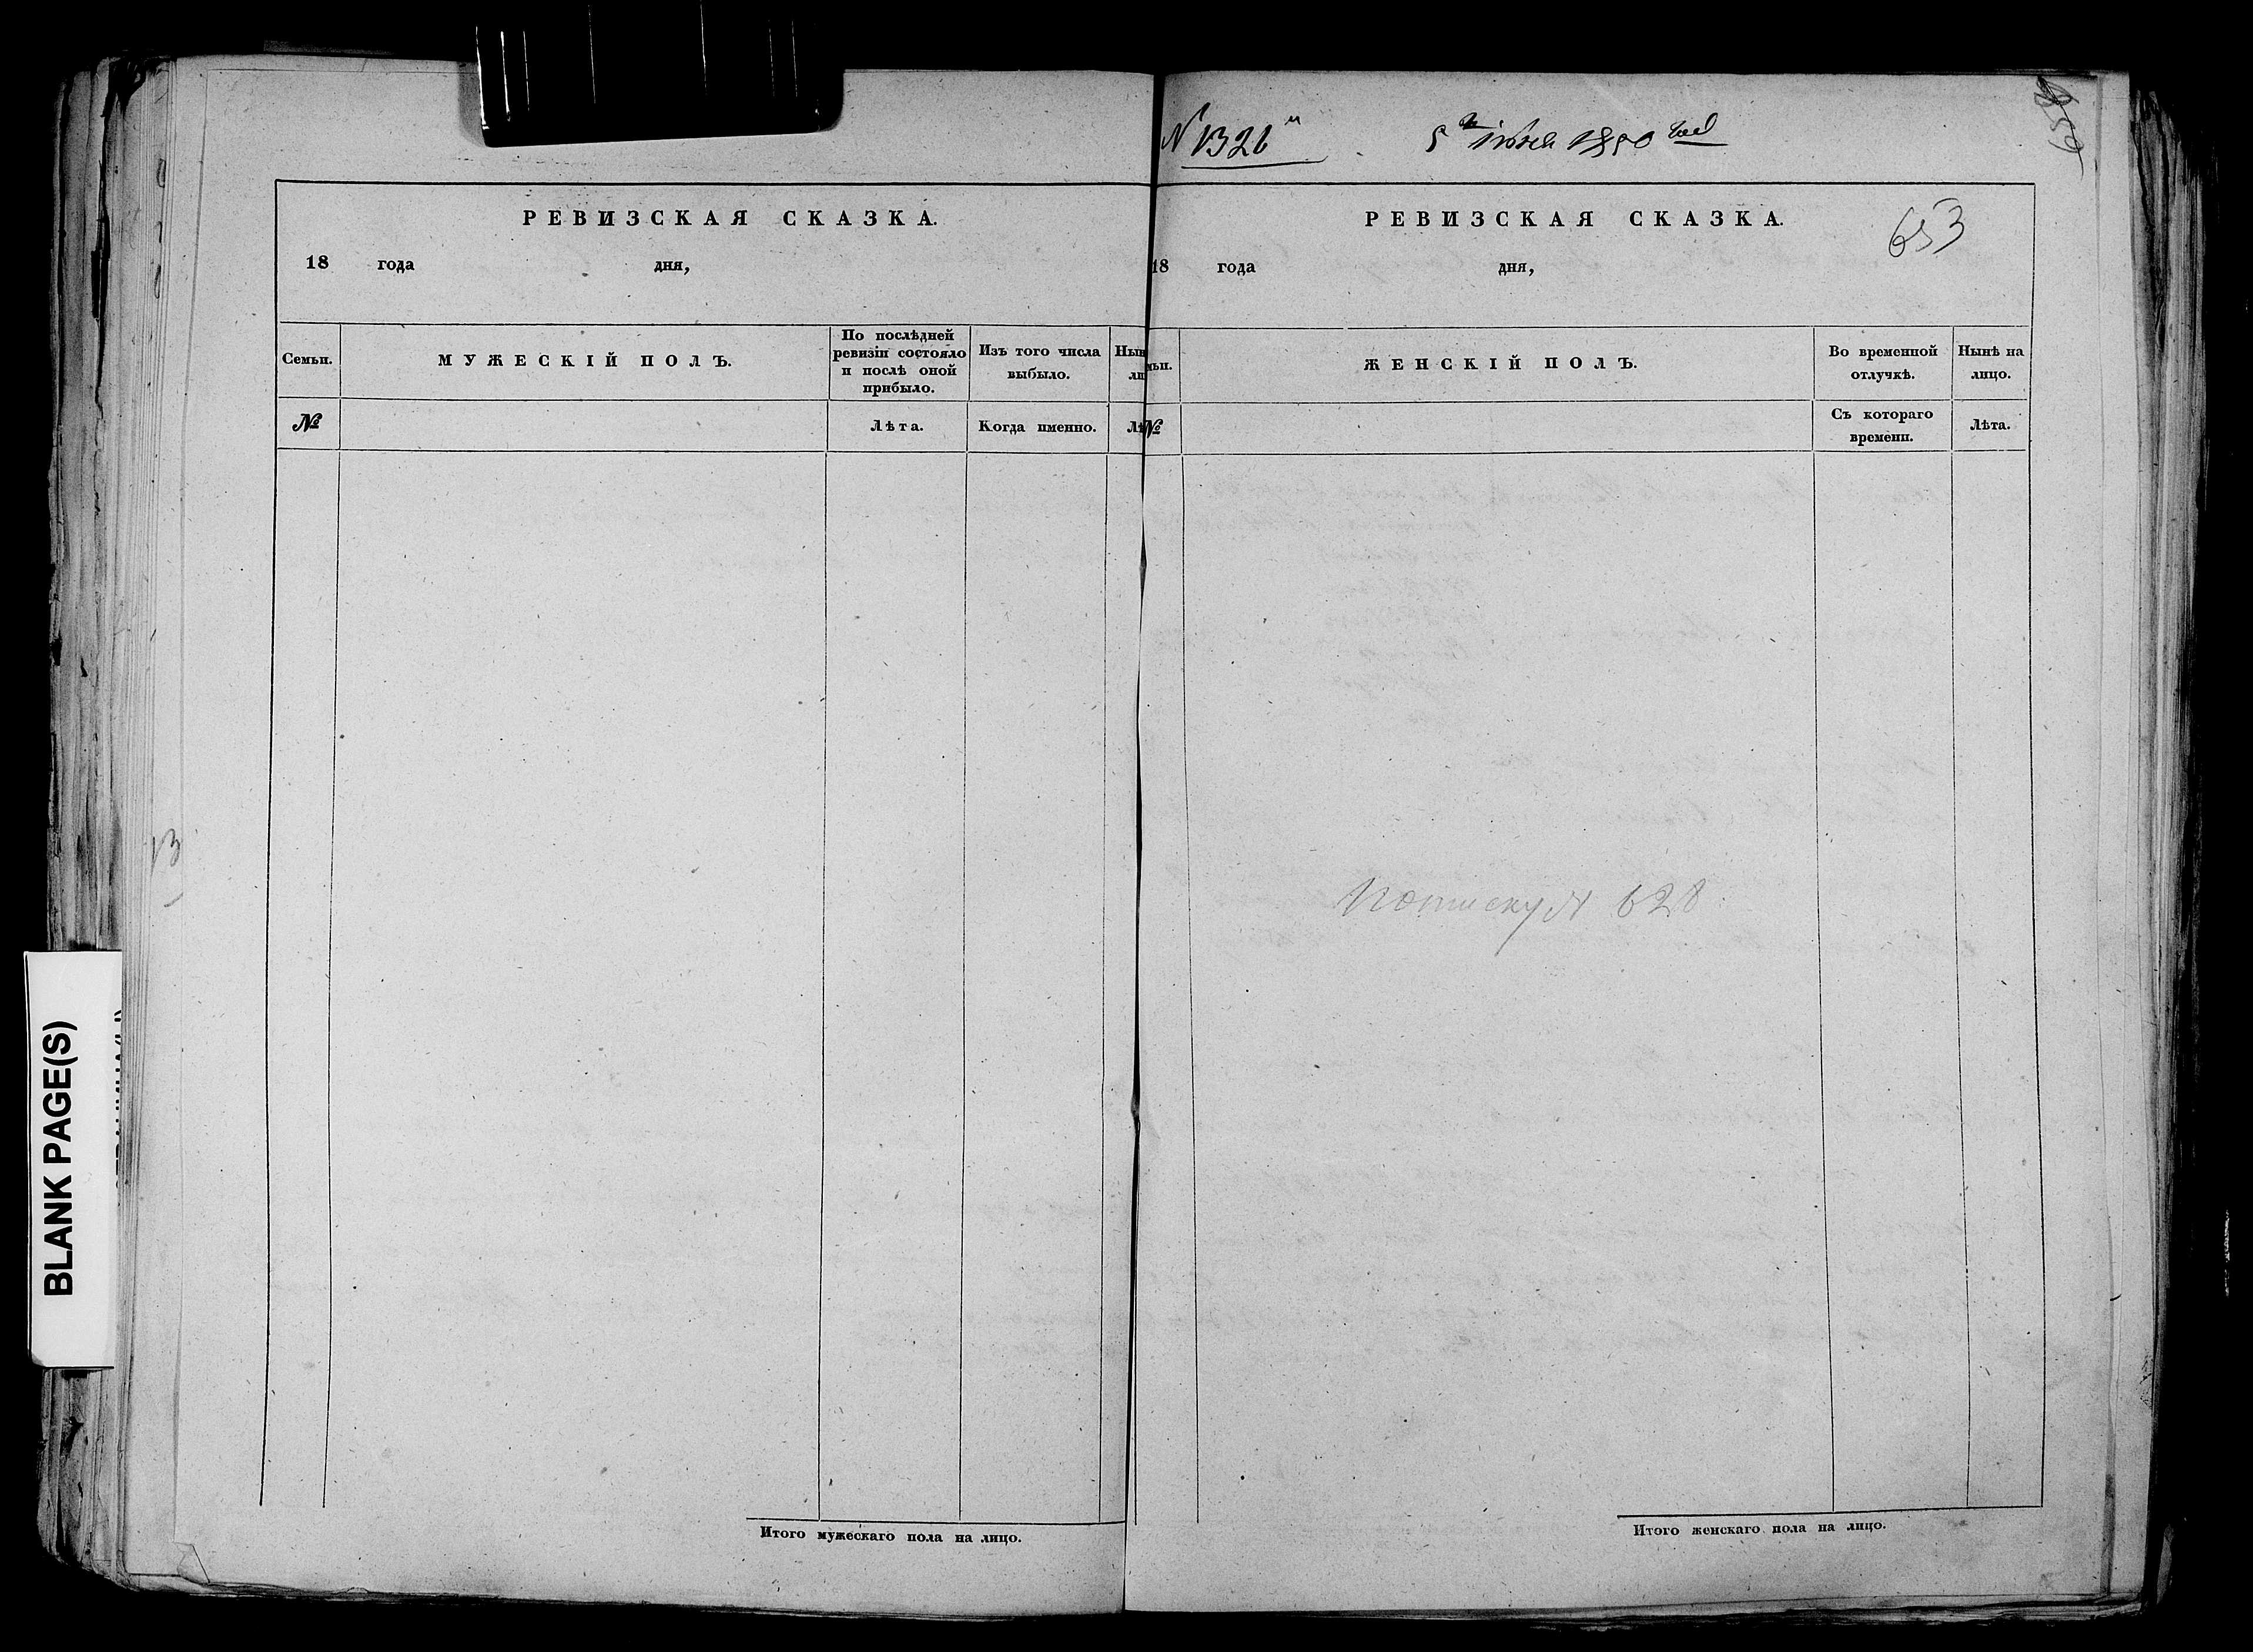 РЕВИЗСКАЯ СКАЗКА.
18 года дня,
Семьи.
МУЖЕСКІЙ ПОЛЪ.
По послѣдней ревизіи состояло и послѣ оной прибыло.
Изъ того числа выбыло.
Нын
ли
№
Лѣта.
Когда именно.
Лѣ
Итого мужескаго пола на лицо.
13
BLANK PAGE(S)
N 1326
5 іюня 1850
653
РЕВИЗСКАЯ СКАЗКА.
18 года дня,
ьи.
ЖЕНСКІЙ ПОЛЪ.
Во временной отлучкѣ.
Нынѣ на лицо.
№
Съ котораго времени.
Лѣта.
По списку N 628
Итого женскаго пола на лицо.